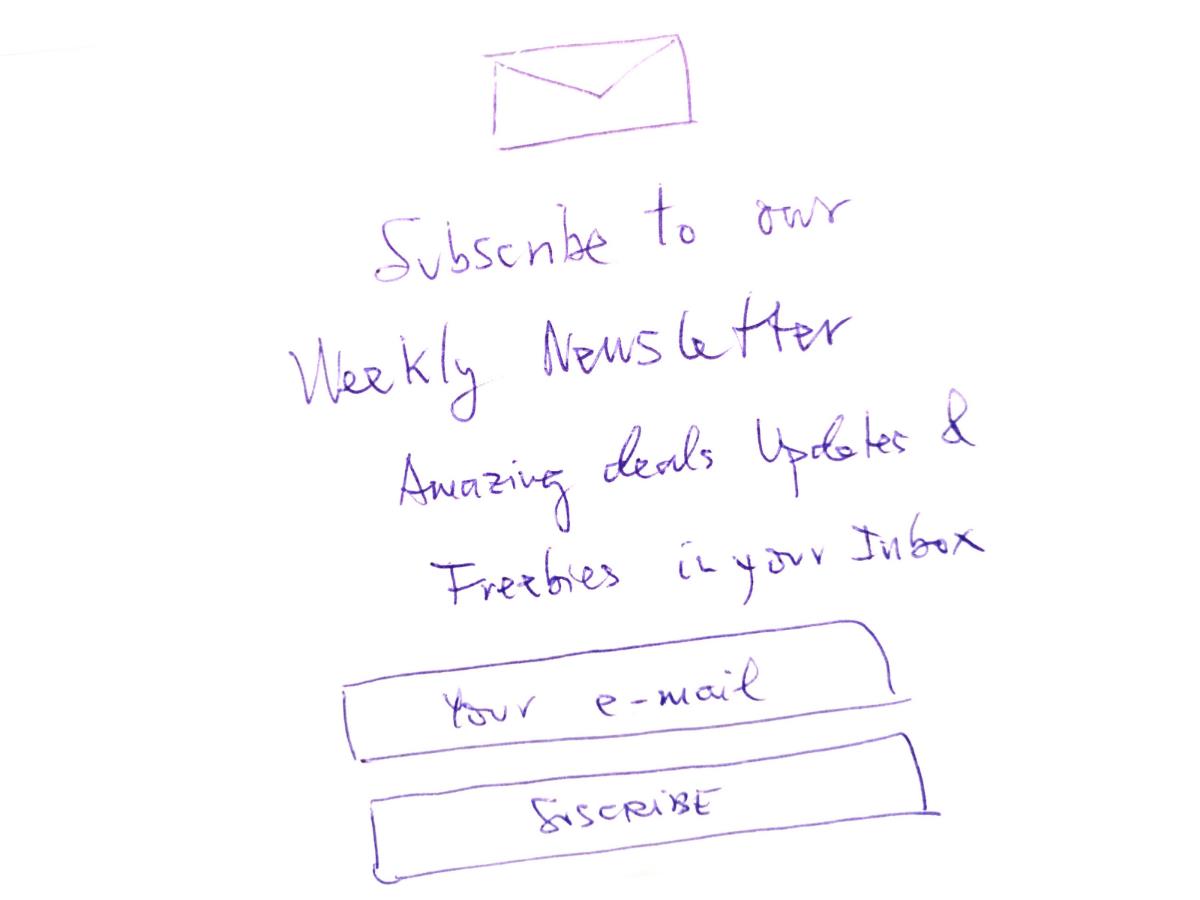 Subscribe to our
Weekly Newsletter
Amazing deals Updates &
Freebies in your Inbox
Your e-mail
SUSCRIBE